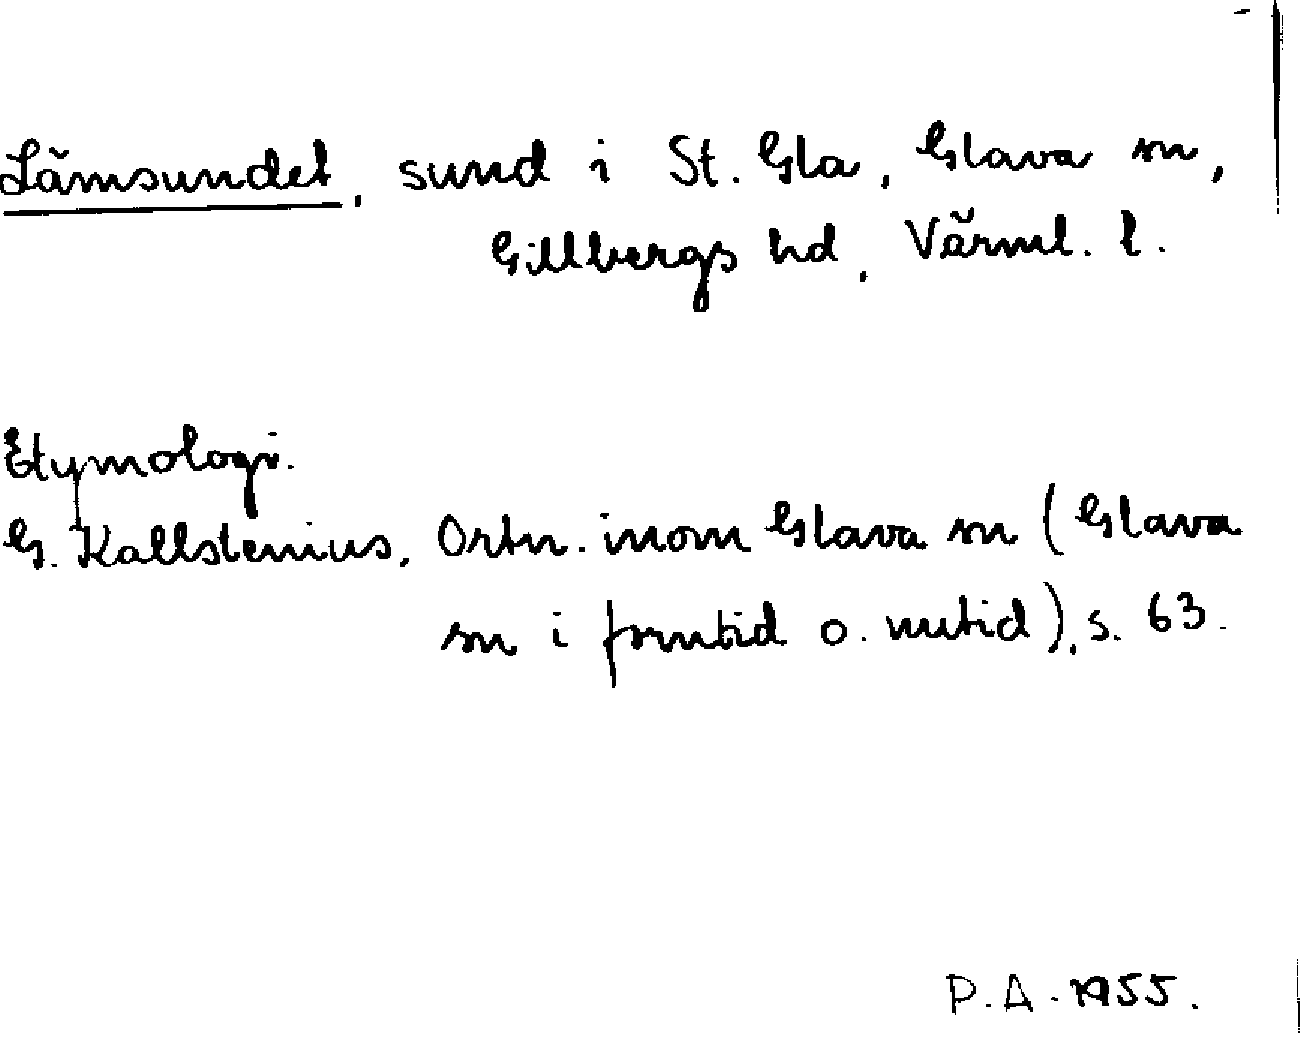 Lämsundet, sund i St. Gla, Glava sn,
Gillbergs hd, Värml. l.
Etymologi.
G. Kallstenius, Ortn. inom Glava sn (Glava
sn i forntid o. nutid), s. 63.
P.A. 1955.